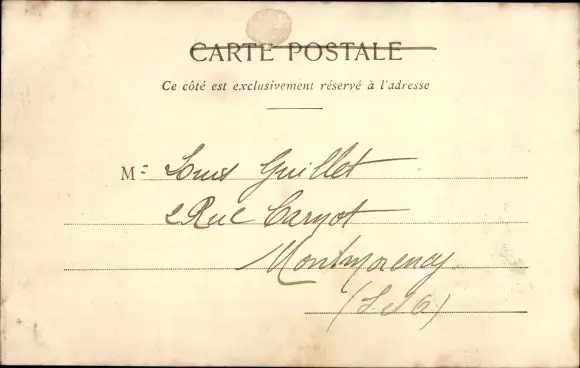 CARTE POSTALE
Ce côté est exclusivement réservé à l'adresse
M: Louis Guillet
2 Rue Carnot
Montmorency
(S. et O.)